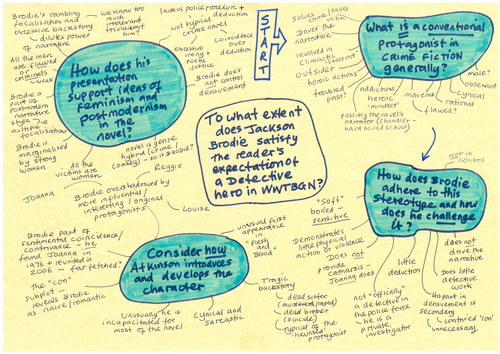 To what extent
does Jackson
Brodie satisfy
the reader's
expectation of
a Detective
hero in WWTBGN?
START
What is a conventional
protagonist in
CRIME FICTION
generally?
Solves crime/saves
victim
Drives the
narrative
involved in
climactic shootout
outsider
heroic actions
troubled
past?
addiction?
heroic
mindset
possibly the novel's
narrator (Chandler -
hard boiled school)
maverick
flawed?
rational
cynical
observant
male?
How does Brodie
adhere to this
stereotype and how
does he challenge
it?
Not in
control
"Soft"
boiled -
sensitive
Demonstrates
little physical
action or violence
Does not
provide
catharsis -
Joanna does
little
deduction
not "officially"
a detective in
the police force
he is a
private
investigator
does not
drive the
narrative
Does little
detective
work
His part in
denouement is
secondary
captured 'con'
unnecessary
Consider how
Atkinson introduces
and develops the
character
unusual first
appearance
in
"flesh
and
Blood"
Tragic
backstory
dead sister
(murdered/raped)
dead brother
(suicide)
typical of the
'haunted' protagonist
Cynical and
sarcastic
Unusually he is
incapacitated for
most of the novel
The "con"
subplot
reveals Brodie
as naive/romantic
Brodie part of
sentimental coincidence/
contrivance - he
found Joanna in
1976 & reunited in
2006 - far fetched?
Brodie overshadowed by
more influential/
interesting/original
protagonists
Joanna
Reggie
Louise
How does his
presentation
support ideas of
feminism and
postmodernism
in the
novel?
Brodie's rambling
focalisation and
excessive backstory
dilutes power
of narrative
We know too
much
irrelevant
trivia about
him?
lack of police procedure +
deduction
not typical
crime novel
coincidence
over
deduction
excessive
irony +
poetic
justice
Brodie does
not control
denouement
novel is genre
hybrid (crime/
comedy) - so is Brodie?
All the
victims are
women
Brodie is
marginalised
by strong
women
Brodie is
part of
postmodern
narrative
style The
multiple
focalisations
All the men
are flawed
or criminals
- weak